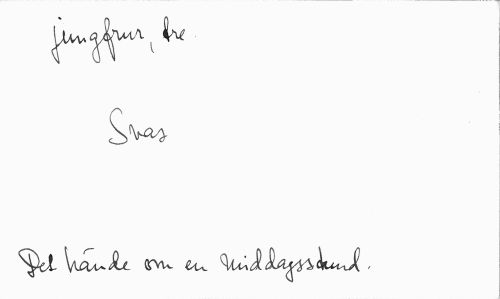 jungfrur, tre.
Svas
Det hände om en middagsstund.